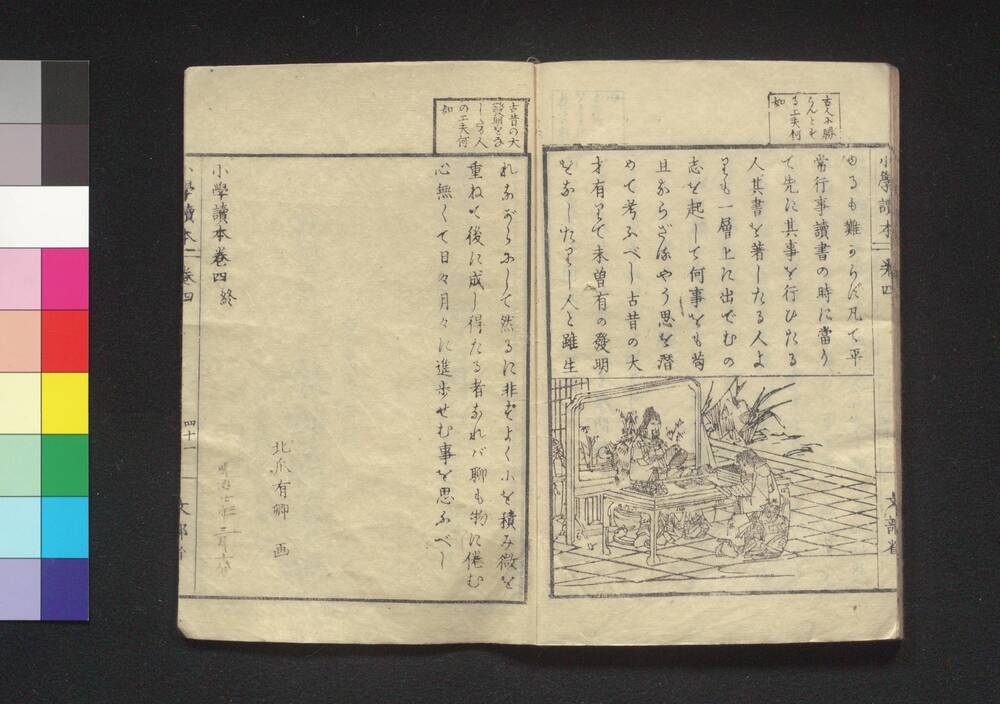 古人に勝
らんとす
る工夫何
如
小學讀本 巻四
文部省
ゆるも難からず凡て平
常行事讀書の時に當り
て先に其事を行ひたる
人其書を著したる人よ
りも一層上に出でむの
志を起して何事をも苟
且ならざるやう思を潜
めて考ふべし古昔の大
才有りて未曽有の發明
をなしたりし人と雖生
古昔の大
發明をな
しゝ人
の工夫何
如
れながらにして然るに非ずよく小を積み微を
重ねて後に成し得たる者なれバ聊も物に倦む
心無くて日々月々に進歩せむ事を思ふべし
北爪有卿 画
小學讀本巻四 終
小學讀本 巻四
四十一
文部省